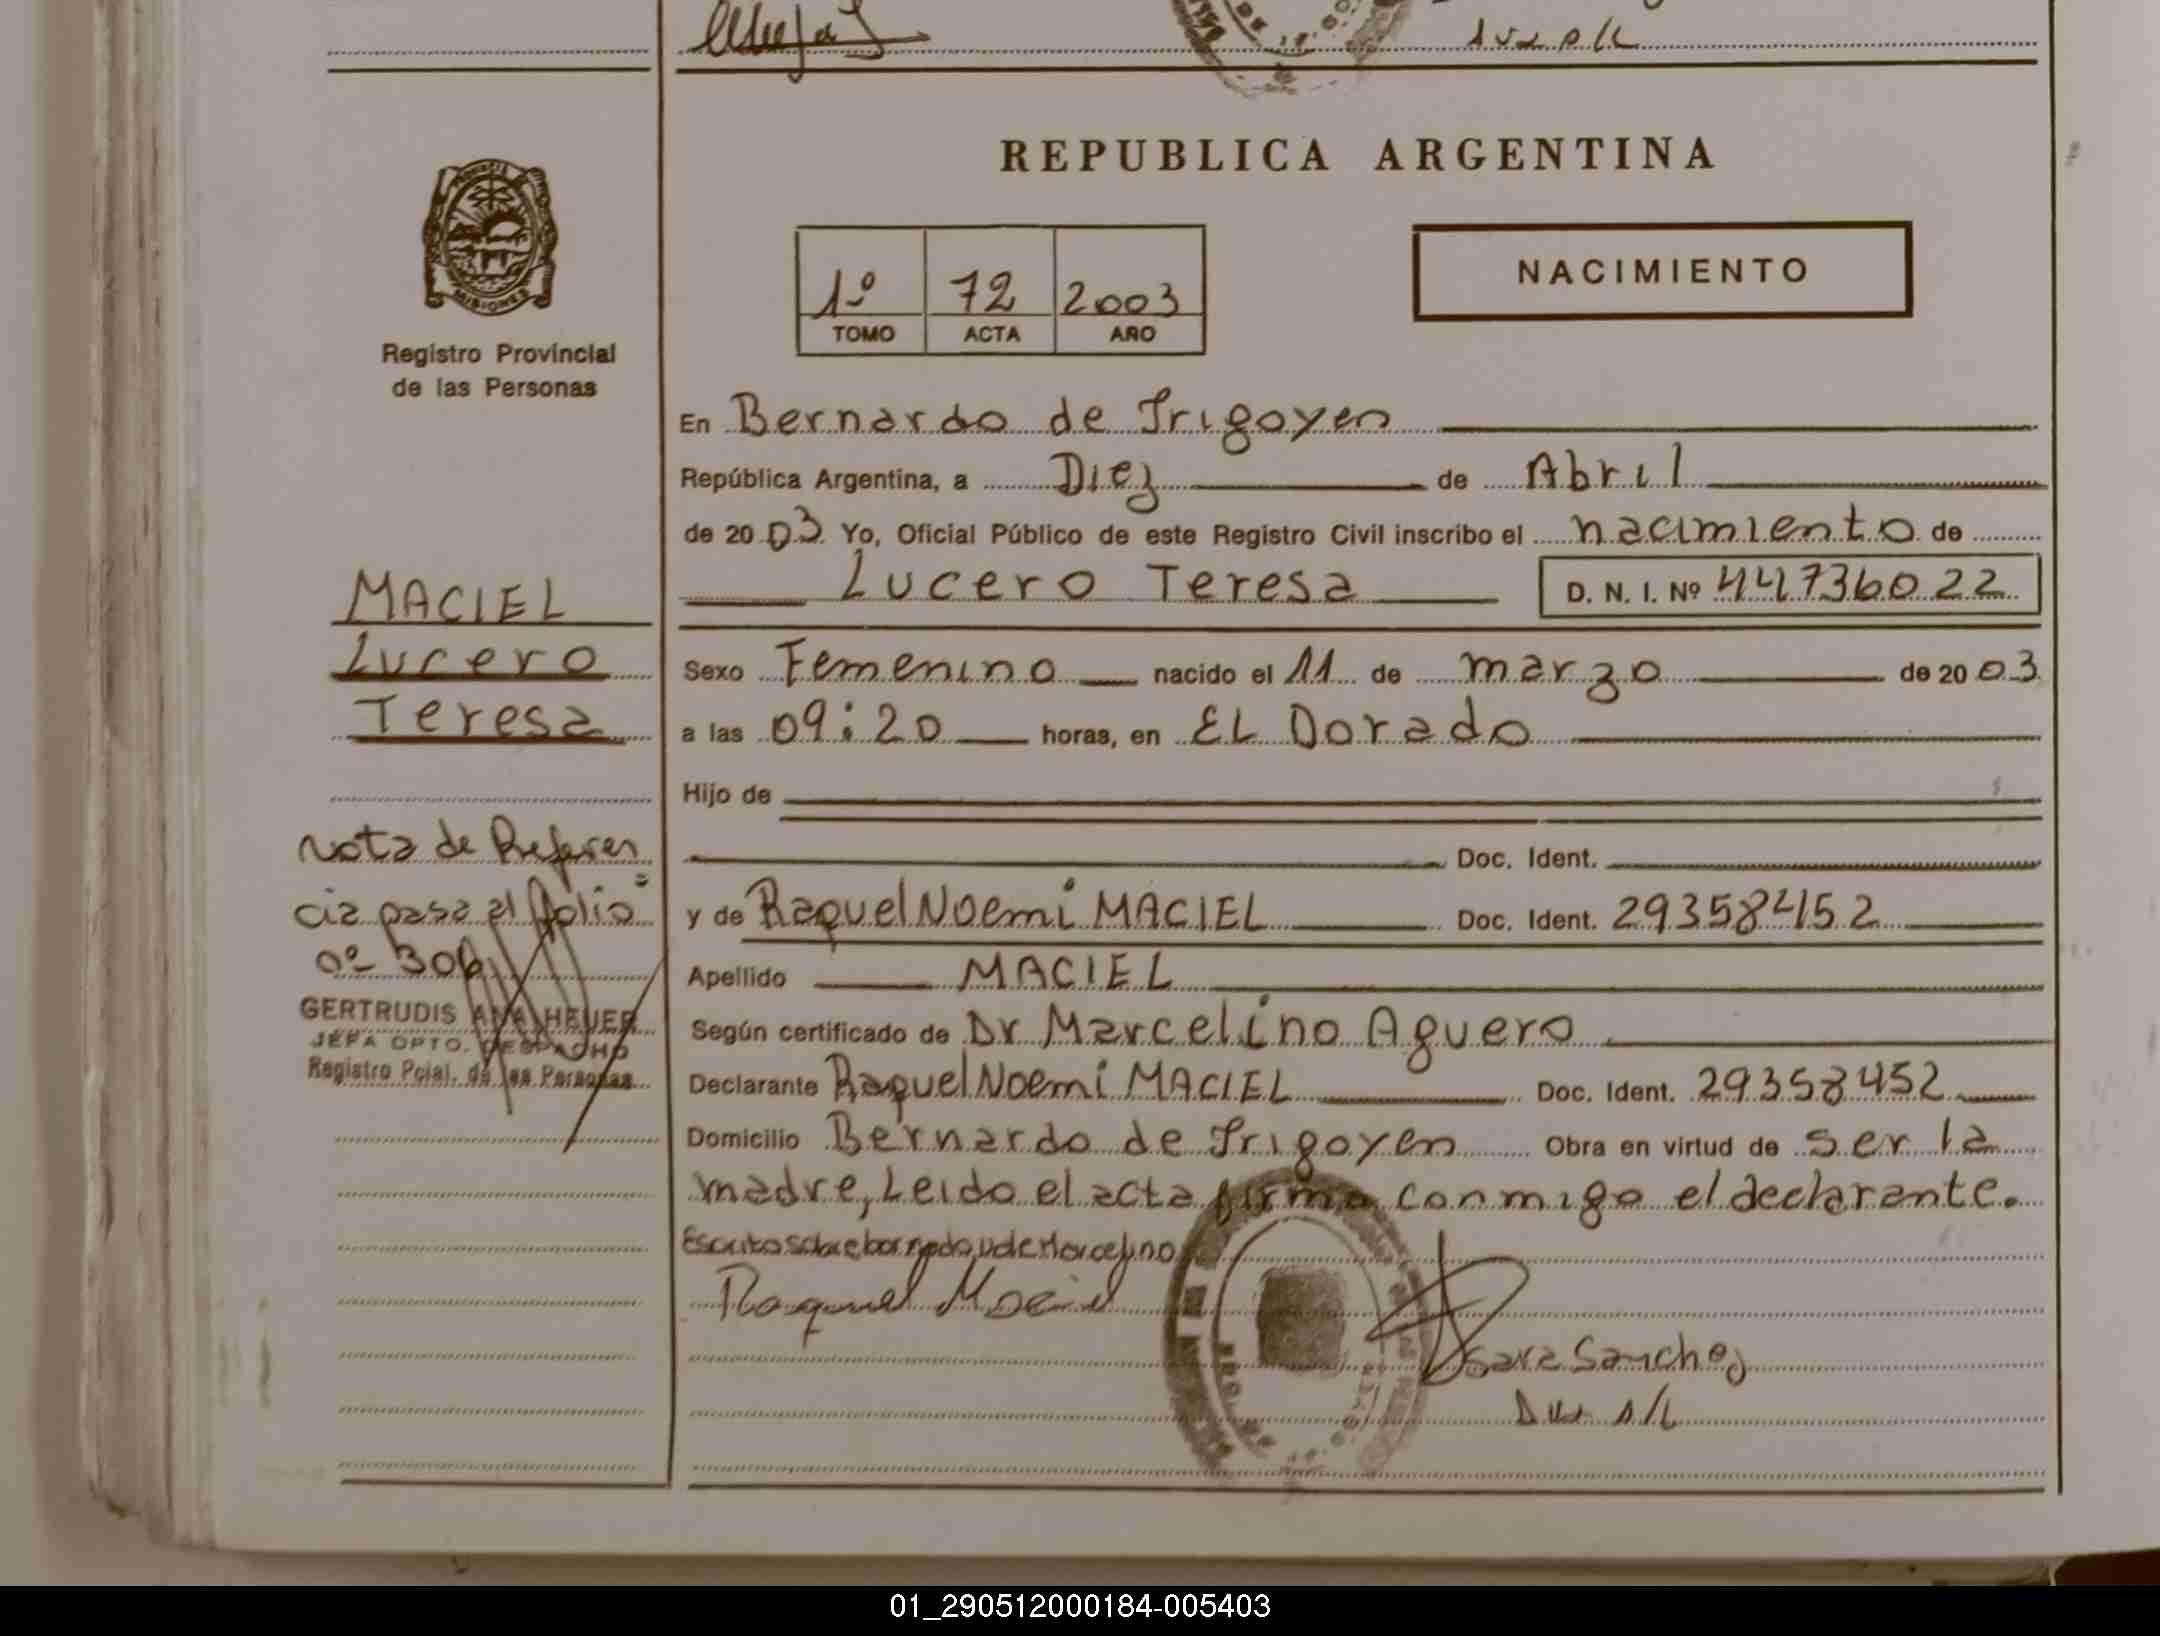 REPUBLICA ARGENTINA
MISIONES
Registro Provincial
de las Personas
NACIMIENTO
1º 72 2003
TOMO ACTA AÑO
En Bernardo de Irigoyen
República Argentina, a Diez de Abril
de 2003 Yo, Oficial Público de este Registro Civil inscribo el nacimiento de
Lucero Teresa D. N. I. Nº 44736022
MACIEL
Lucero
Teresa
Sexo Femenino nacido el 11 de marzo de 2003
a las 09:20 horas, en EL Dorado
Hijo de
Doc. Ident.
y de Raquel Noemi MACIEL Doc. Ident. 29358452
Apellido MACIEL
Según certificado de Dr Marcelino Aguero
Declarante Raquel Noemi MACIEL Doc. Ident. 29358452
Domicilio Bernardo de Irigoyen Obra en virtud de ser la
madre, Leido el acta firma conmigo el declarante.
Escrito sobre borrado, vale Marcelino
Raquel Maciel
Sara Sanchez
Nota de Referen
cia pasa al folio
nº 306
GERTRUDIS ANA HEUER
JEFA DPTO. DESPACHO
Registro Pcial. de las Personas
01_290512000184-005403